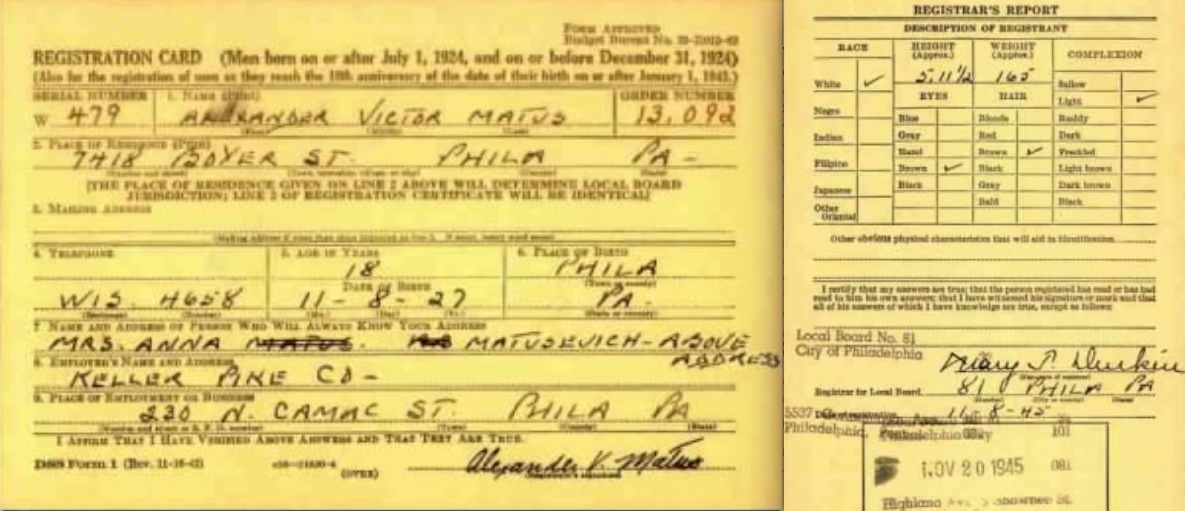 FORM APPROVED
Budget Bureau No.
REGISTRATION CARD (Men born on or after July 1, 1924, and on or before December 31, 1924)
(Also for the registration of men as they reach the 18th anniversary of the date of their birth on or after January 1, 1943.)
SERIAL NUMBER 1. NAME (Print) ORDER NUMBER
W 479 ALEXANDER VICTOR MATUS 13,092
(First) (Middle) (Last)
2. PLACE OF RESIDENCE (Print)
7418 BOYER ST. PHILA PA-
(Number and street) (Town, township, village, or city) (County) (State)
[THE PLACE OF RESIDENCE GIVEN ON LINE 2 ABOVE WILL DETERMINE LOCAL BOARD
JURISDICTION; LINE 2 OF REGISTRATION CERTIFICATE WILL BE IDENTICAL]
3. MAILING ADDRESS
4. TELEPHONE 5. AGE IN YEARS 6. PLACE OF BIRTH
18 PHILA
DATE OF BIRTH (Town or county)
WIS. 4658 11-8-27 PA.
(Exchange) (Number) (Mo.) (Day) (Yr.) (State or country)
7. NAME AND ADDRESS OF PERSON WHO WILL ALWAYS KNOW YOUR ADDRESS
MRS. ANNA MATUS. MATUSEVICH-ABOVE
ADDRESS
8. EMPLOYER'S NAME AND ADDRESS
KELLER PIKE CO-
9. PLACE OF EMPLOYMENT OR BUSINESS
230 N. CAMAC ST. PHILA PA
(Number and street or R. F. D. number) (Town) (County) (State)
I AFFIRM THAT I HAVE VERIFIED ABOVE ANSWERS AND THAT THEY ARE TRUE.
DSS Form 1 (Rev. 11-16-42) (OVER) Alexander V. Matus
(Registrant's signature)
REGISTRAR'S REPORT
DESCRIPTION OF REGISTRANT
RACE HEIGHT (Approx.) WEIGHT (Approx.) COMPLEXION
White ✓ 5.11½ 165 Sallow
EYES HAIR Light ✓
Negro Blue Blonde Ruddy
Indian Gray Red Dark
Hazel Brown ✓ Freckled
Filipino Brown ✓ Black Light brown
Japanese Black Gray Dark brown
Other Oriental Bald Black
Other obvious physical characteristics that will aid in identification
I certify that my answers are true; that the person registered has read or has had
read to him his own answers; that I have witnessed his signature or mark and that
all of his answers of which I have knowledge are true, except as follows:
Local Board No. 81
City of Philadelphia
Mary T. Durkin
Registrar for Local Board 81 PHILA PA
(Number) (City or county) (State)
Date of registration 11-8-45
5537
Philadelphia,
101
NOV 20 1945 081
Highland Ave. Shawnee St.